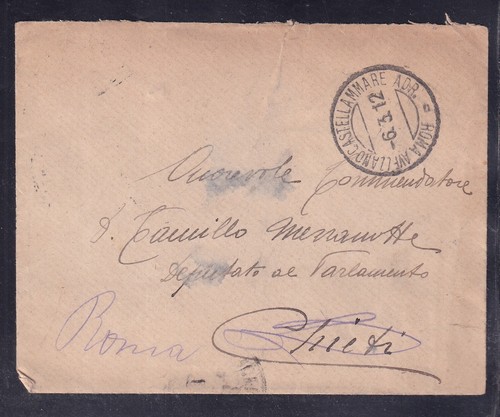 ROMA AVELLANO CASTELLAMMARE ADR.
-6.3.12
Onorevole Commendatore
D. Camillo Mezzanotte
Deputato al Parlamento
Chieti
Roma